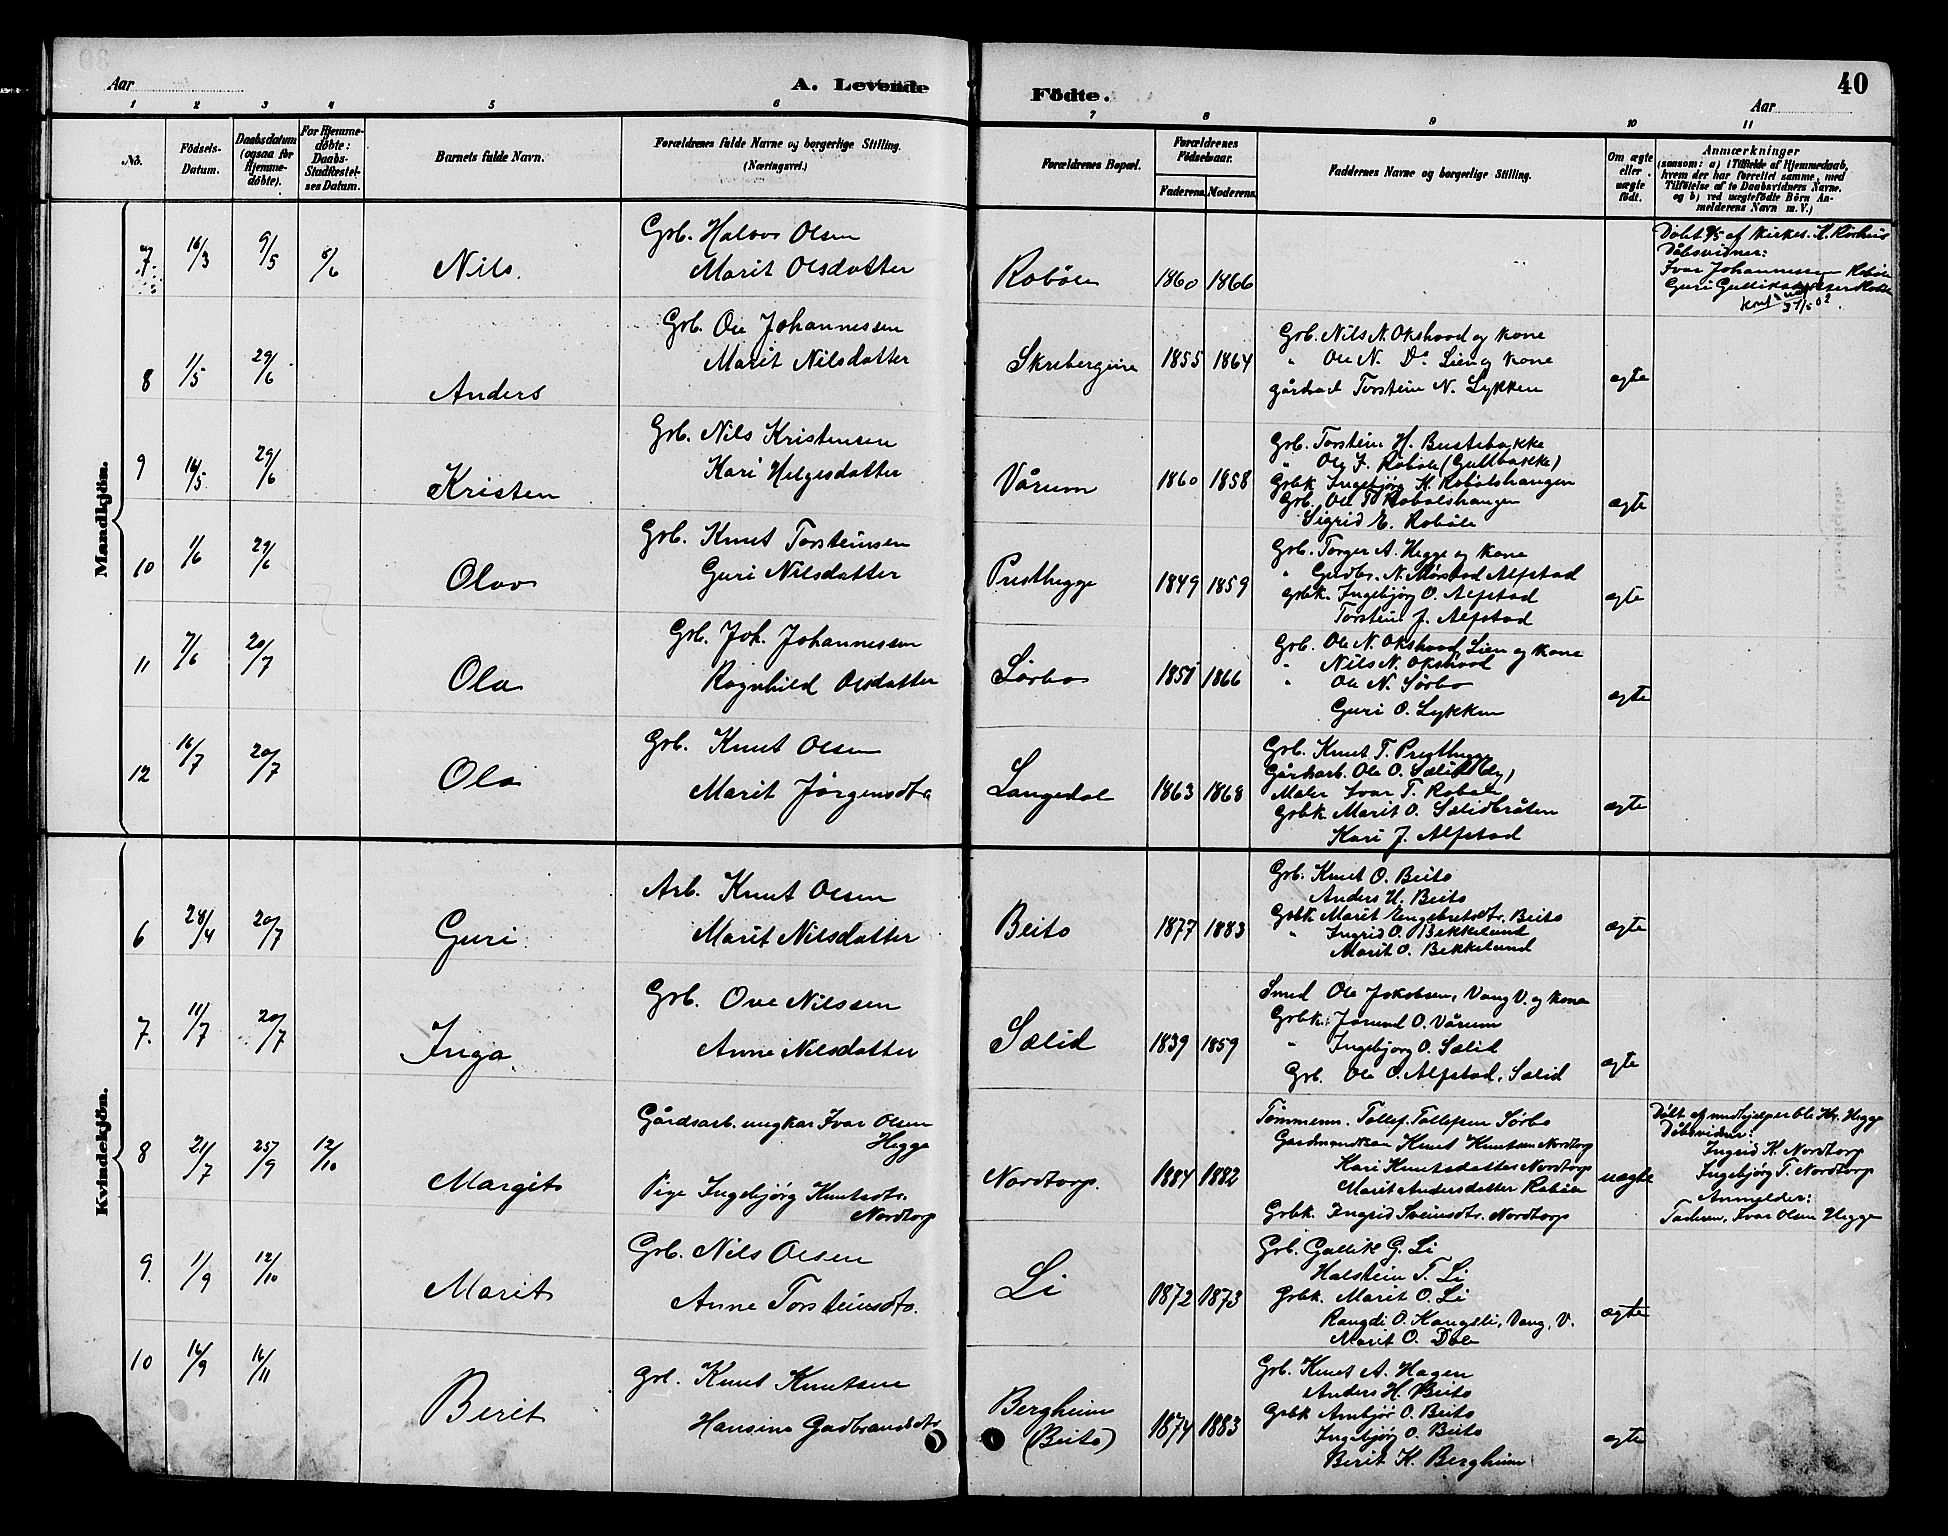 Aar
A. Levende Födte.
40
Aar
1 2 3 4 5 6 7 8 9 10 11
No.
Födsels-Datum.
Daabsdatum (ogsaa for Hjemme-döbte).
For Hjemme-döbte: Daabs-Stadfæstel-ses Datum.
Barnets fulde Navn.
Forældrenes fulde Navne og borgerlige Stilling. (Næringsvei.)
Forældrenes Bopæl.
Forældrenes Födselsaar.
Faderens. Moderens.
Faddernes Navne og borgerlige Stilling.
Om ægte eller uægte födt.
Anmærkninger
(saasom: a) i Tilfælde af Hjemmedaab, hvem der har forrettet samme, med Tilföielse af to Daabsvidners Navne. og b) ved uægtefödte Börn An-melderens Navn m. V.)
Mandkjön.
7 16/3 9/5 8/6 Nils.
Grb. Halvor Olsen
Marit Olsdatter
Robøle 1860 1866
Døbt 9/5 af Kirkes. A. Rørhus
Dåbsvidner:
Ivar Johannessen Robøle
Guri Gulliksdatter Robøle
8 1/5 29/6 Anders
Grb. Ole Johannessen
Marit Nilsdatter
Skrebergene 1855 1864
Grb. Nils N. Okshovd og kone
" Ole N. Do Lien og kone
gårbrd Torstein N. Lykken
ægte
9 14/5 29/6 Kristen
Grb. Nils Kristensen
Kari Helgesdatter
Vårum 1860 1858
Grb. Torstein H. Bustebakke
" Ole J. Robøle (Gullbakke)
Grbk Ingebjørg K. Robølshaugen
Grb. Ole T. Robølshaugen
Sigrid E. Robøle
ægte
10 1/6 29/6 Olav
Grb. Knut Torsteinsen
Guri Nilsdatter
Presthegge 1849 1859
Grb. Torger A. Hegge og kone
" Gudbr. N. Mørstad Alfstad
grbk. Ingebjørg O. Alfstad
Torstein J. Alfstad
ægte
11 7/6 20/7 Ola
Grb. Joh. Johannessen
Ragnhild Olsdatter
Sørbo 1851 1866
Grb. Ole N. Okshovd, Lien og kone
" Nils N. Okshovd
" Ole N. Sørbo
Guri O. Lykken
ægte
12 16/7 20/7 Ola
Grb. Knut Olsen
Marit Jørgensdtr
Langedal 1863 1868
Grb. Knut T. Presthegge
Gårdsarb. Ole O. Sælid
Maler Ivar T. Robøle
Grbk. Marit O. Sælidbråten
Kari J. Alfstad
ægte
Kvindekjön.
6 28/4 20/7 Guri
Arb. Knut Olsen
Marit Nilsdatter
Beito 1877 1883
Grb. Knut O. Beito
Anders H. Beito
Grbk Marit Engebretsdtr. Beito
" Ingrid O. Bekkelund
Marit O. Bekkelund
ægte
7. 11/7 20/7 Inga
Grb. Ove Nilssen
Anne Nilsdatter
Sælid 1839 1859
Smed Ole Jakobsen, Vang V. og kone
Grbk. Jørund O. Vårum
" Ingebjørg O. Sælid
Grb. Ole O. Alfstad, Sælid
ægte
8 21/7 25/9 12/10 Margit
Gårdsarb. ungkar Ivar Olsen
Hegge
Pige Ingebjørg Knutsdtr.
Nordtorp
Nordtorp. 1884 1882
Tømmerm. Tollef Tollefsen Sørbo
Gardmandkar Knut Knutsen Nordtorp
Kari Knutsdatter Nordtorp
Marit Andersdatter Robøle
Grbk. Ingrid Sveinsdtr. Nordtorp
uægte
Døbt af medhjælper Ole Kr. Hegge
Dåbsvidner:
Ingrid K. Nordtorp
Ingebjørg T. Nordtorp
Anmelder:
Faderen, Ivar Olsen Hegge
9. 1/9 12/10 Marit
Grb. Nils Olsen
Anne Torsteinsdtr.
Li 1872 1873
Grb. Gullik G. Li
Halstein T. Li
Grbk. Marit O. Li
Rangdi O. Haugsli, Vang, V.
Marit O. Døle
ægte
10 16/9 16/11 Berit
Grb. Knut Knutsen
Hansine Gudbrandsdtr
Bergheim
(Beito)
1874 1883
Grb. Knut A. Hagen
Anders H. Beito
Grbk Ambjør O. Beito
Ingebjørg O. Beito
Berit K. Bergheim
ægte